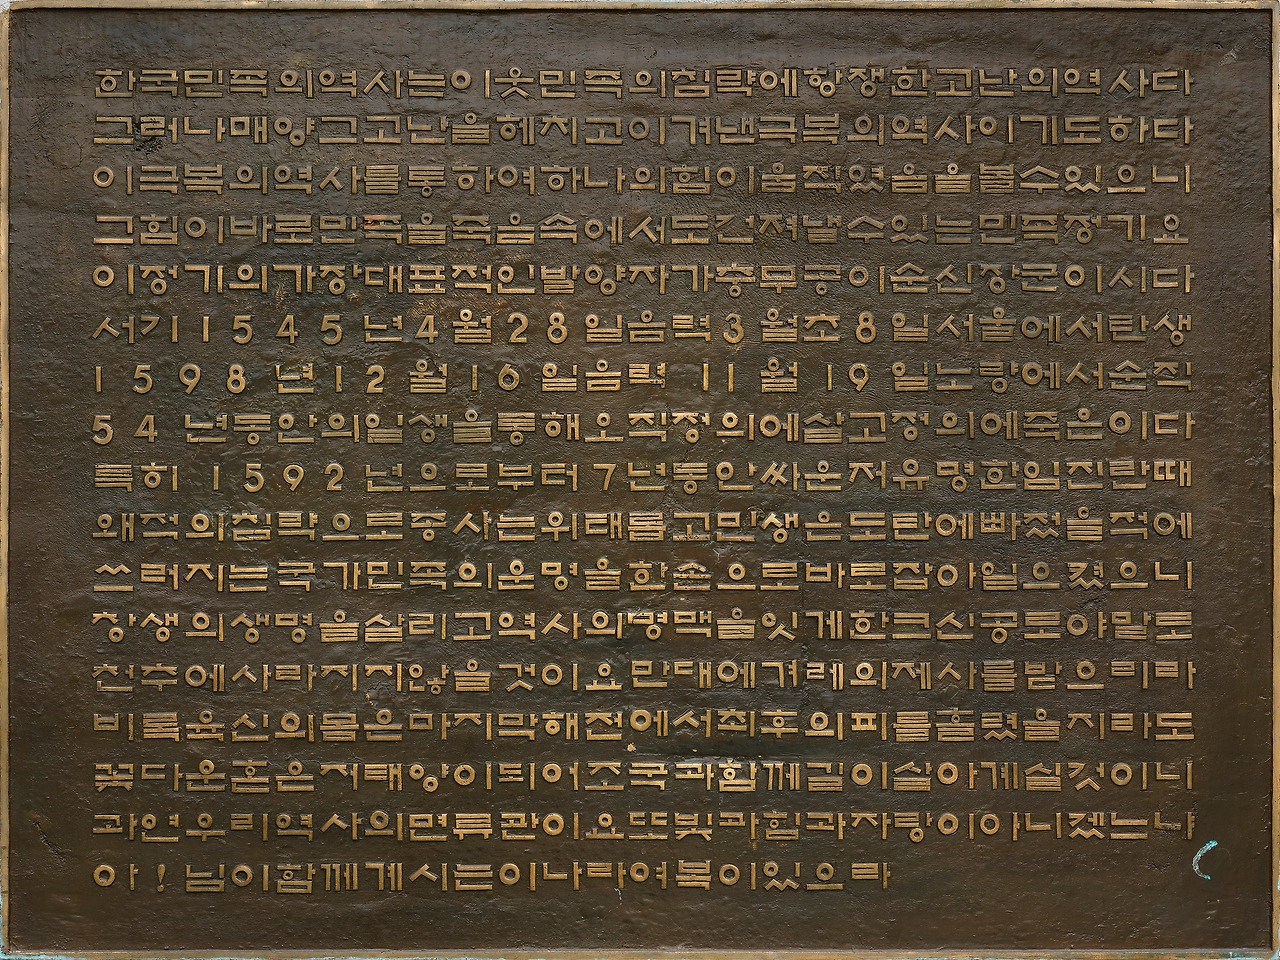 한국민족의역사는이웃민족의침략에항쟁한고난의역사다
그러나매양그고난을헤치고이겨낸극복의역사이기도하다
이극복의역사를통하여하나의힘이움직였음을볼수있으니
그힘이바로민족을죽음속에서도건져낼수있는민족정기요
이정기의가장대표적인발양자가충무공이순신장군이시다
서기1545년4월28일음력3월초8일서울에서탄생
1598년12월16일음력11월19일노량에서순직
54년동안의일생을통해오직정의에살고정의에죽은이다
특히1592년으로부터7년동안싸운저유명한임진란때
왜적의침략으로종사는위태롭고민생은도탄에빠졌을적에
쓰러지는국가민족의운명을한손으로바로잡아일으켰으니
창생의생명을살리고역사의명맥을잇게한크신공로야말로
천추에사라지지않을것이요만대에겨레의제사를받으리라
비록육신의몸은마지막해전에서최후의피를흘렸을지라도
꽃다운혼은저태양이되어조국과함께길이살아계실것이니
과연우리역사의면류관이요또빛과힘과자랑이아니겠는냐
아!님이함께계시는이나라여복이있으라